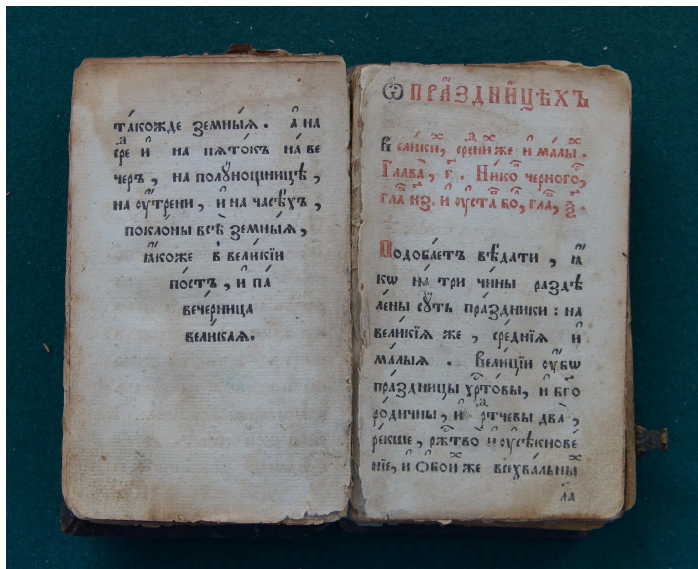 та́кожде земны́ѧ . А҆ на
сре и҆ на пѧто́къ на́ ве
черъ , на полу́нощницѣ ,
на ѹ҆́трени , и҆ на часѣ́хъ ,
покло́ны всѣ̀ земны́ѧ ,
ꙗ҆́коже в вели́кїи
по́стъ , и҆ па
вече́рница
вели́каѧ.
Ѡ҆ пра́здни҆цѣхъ
Вели́ки , сре́ни же и҆ ма́лы .
Глава̀ , г҃ . Ни́ко че́рного ,
гла н҃з . и҆ ѹ҆ста бо , гла ,
Подоба́етъ вѣ́дати , ꙗ҆́
кѡ на́ три чи́ны раздѣ
ле́ны су́ть пра́здники : на
вели́кїѧ же , сре́днїѧ и҆
ма́лыѧ . Вели́цїи ѹ҆́бѡ
пра́здницы хр҃то́вы , и҆ бг҃о
ро́дичны , и҆ прⷣтчевы два̀ ,
ре́кше , ржⷭ҇тво̀ и҆ ѹ҆сѣкнове́
нїе , и҆ ѻ҆бои́ же всехва́льны
ла